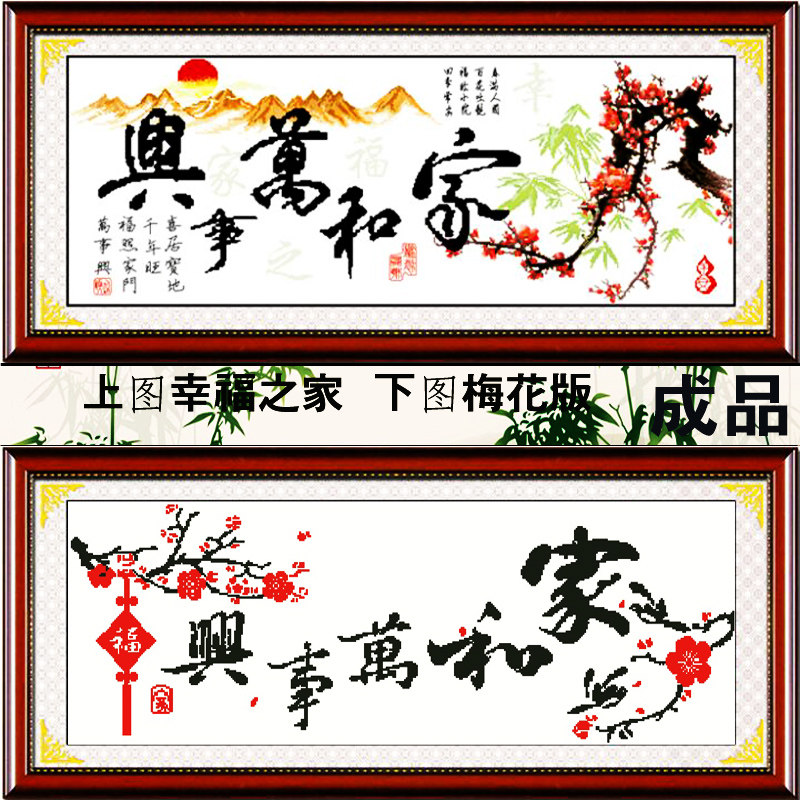 家和萬事興
幸福之家
喜居寶地
千年旺
福照家門
萬事興
上图幸福之家 下图梅花版
成品
家和萬事興
福